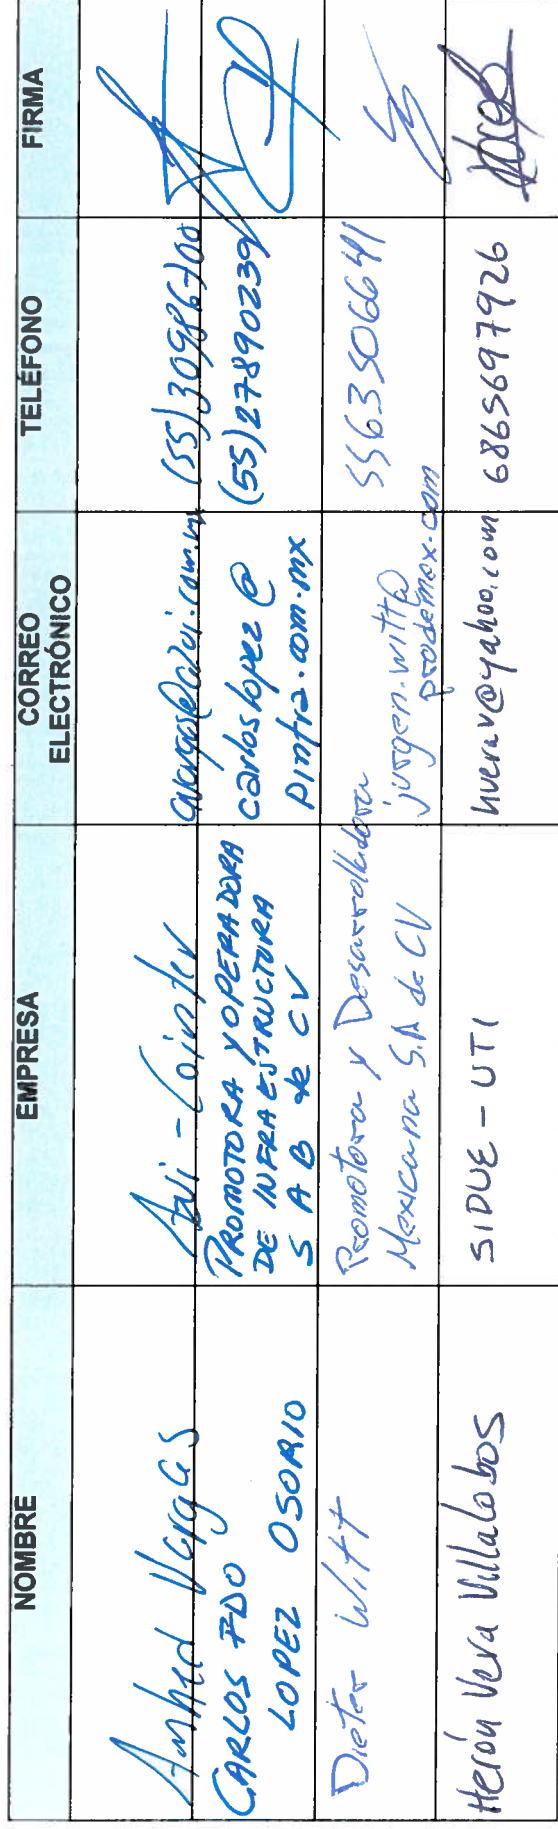 NOMBRE
EMPRESA
CORREO
ELECTRÓNICO
TELÉFONO
FIRMA
Vargas
(55)30986700
CARLOS FDO
LOPEZ OSORIO
PROMOTORA Y OPERADORA
DE INFRAESTRUCTURA
S A B de CV
carloslopez@
pinfra.com.mx
(55)27890239
Dieter Witt
Promotora y Desarrolladora
Mexicana S.A de CV
jurgen.witt@
prodemex.com
5563506641
Herón Vera Villalobos
SIDUE - UTI
hverav@yahoo.com
6865697926